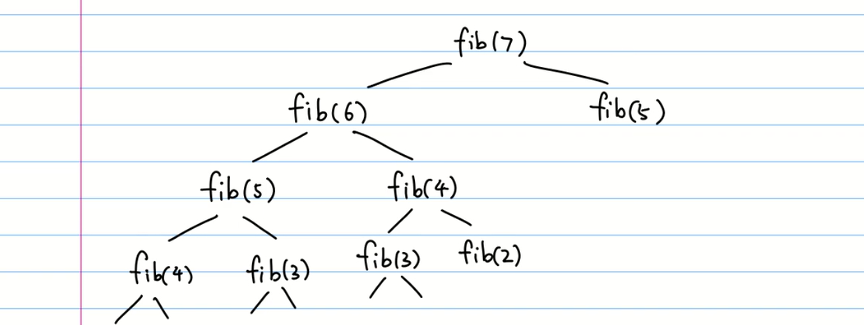 fib(7)
fib(6) fib(5)
fib(5) fib(4)
fib(4) fib(3) fib(3) fib(2)